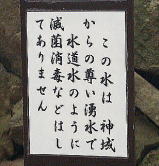 この水は　神域
からの尊い湧水で
水道水のように
滅菌消毒などはし
てありません